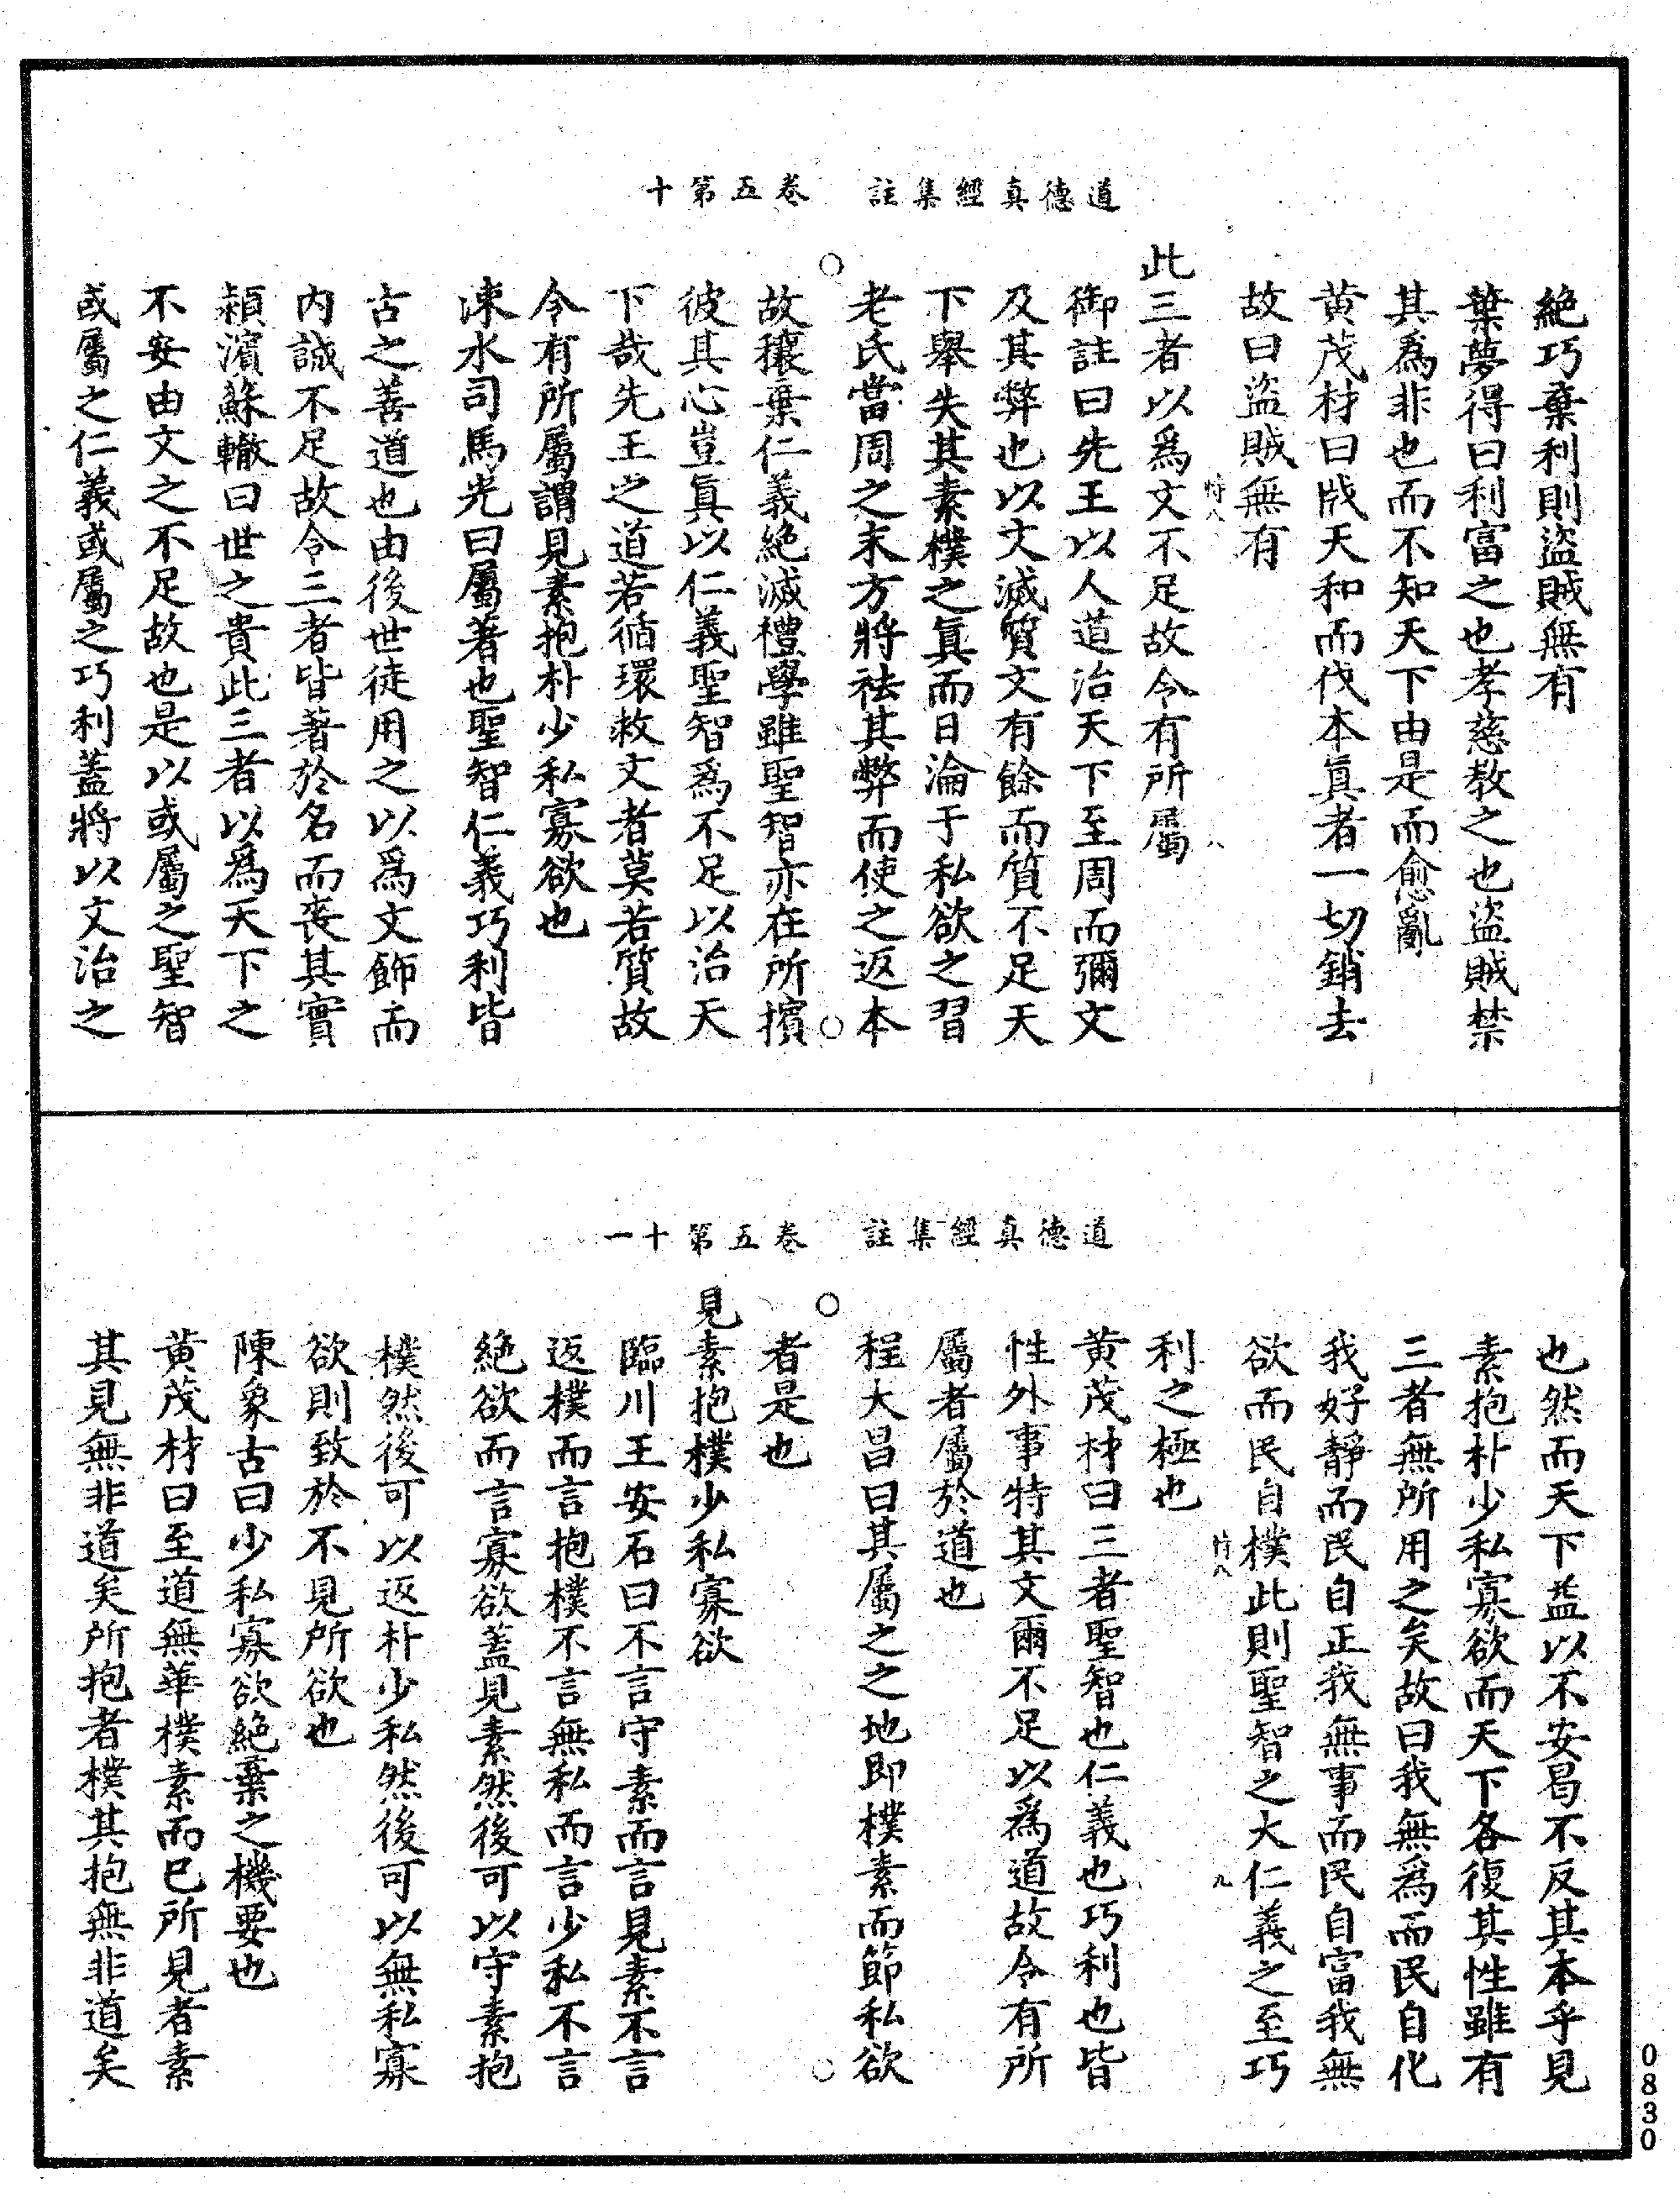 道德真經集註　卷五第十
絶巧棄利則盜賊無有
葉夢得曰利富之也孝慈教之也盜賊禁
其為非也而不知天下由是而愈亂
黃茂材曰戕天和而伐本真者一切銷去
故曰盜賊無有
此三者以為文不足故令有所屬
御註曰先王以人道治天下至周而彌文
及其弊也以文滅質文有餘而質不足天
下舉失其素樸之真而日淪于私欲之習
老氏當周之末方將祛其弊而使之返本
故穰棄仁義絶滅禮學雖聖智亦在所擯
彼其心豈真以仁義聖智為不足以治天
下哉先王之道若循環救文者莫若質故
令有所屬謂見素抱朴少私寡欲也
涑水司馬光曰屬著也聖智仁義巧利皆
古之善道也由後世徒用之以為文飾而
內誠不足故令三者皆著於名而喪其實
潁濱蘇轍曰世之貴此三者以為天下之
不安由文之不足故也是以或屬之聖智
或屬之仁義或屬之巧利蓋將以文治之
道德真經集註　卷五第十一
也然而天下益以不安曷不反其本乎見
素抱朴少私寡欲而天下各復其性雖有
三者無所用之矣故曰我無為而民自化
我好靜而民自正我無事而民自富我無
欲而民自樸此則聖智之大仁義之至巧
利之極也
黃茂材曰三者聖智也仁義也巧利也皆
性外事特其文爾不足以為道故令有所
屬者屬於道也
程大昌曰其屬之之地即樸素而節私欲
者是也
見素抱樸少私寡欲
臨川王安石曰不言守素而言見素不言
返樸而言抱樸不言無私而言少私不言
絶欲而言寡欲蓋見素然後可以守素抱
樸然後可以返朴少私然後可以無私寡
欲則致於不見所欲也
陳象古曰少私寡欲絶棄之機要也
黃茂材曰至道無華樸素而已所見者素
其見無非道矣所抱者樸其抱無非道矣
0830